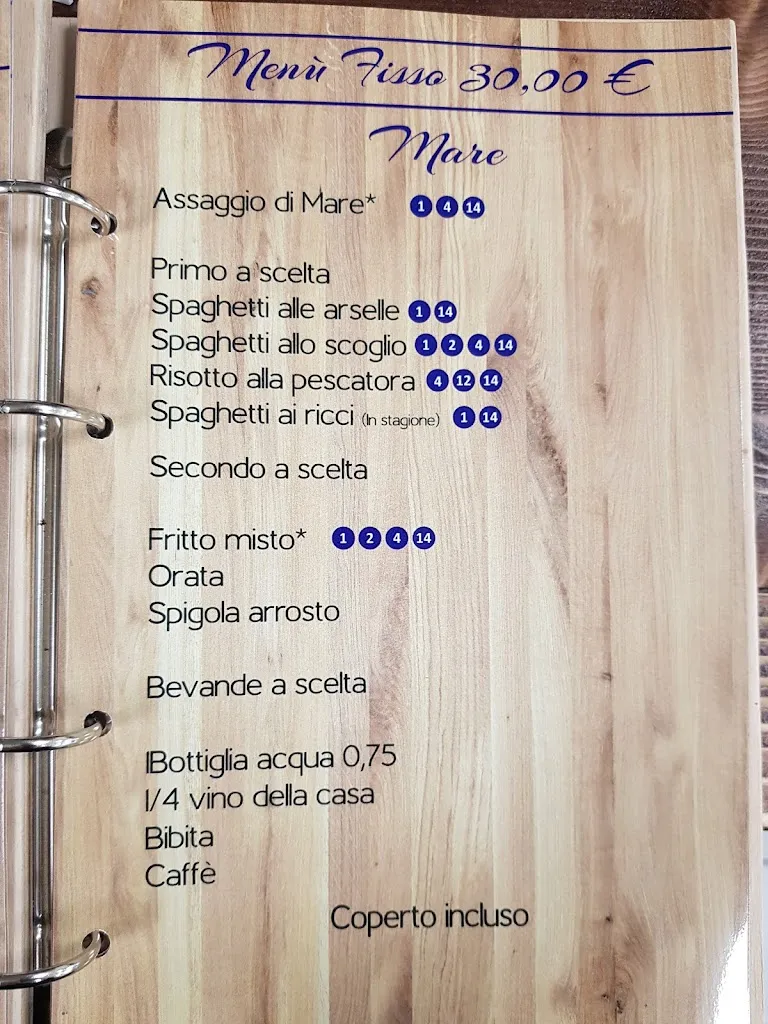 Menù Fisso 30,00 €
Mare
Assaggio di Mare* 1 4 14
Primo a scelta
Spaghetti alle arselle 1 14
Spaghetti allo scoglio 1 2 4 14
Risotto alla pescatora 4 12 14
Spaghetti ai ricci (In stagione) 1 14
Secondo a scelta
Fritto misto* 1 2 4 14
Orata
Spigola arrosto
Bevande a scelta
1Bottiglia acqua 0,75
1/4 vino della casa
Bibita
Caffè
Coperto incluso